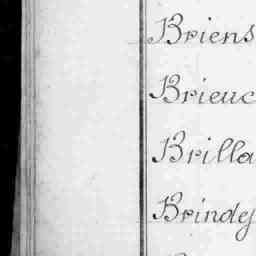 Briens
Brieuc
Brilla
Brindej